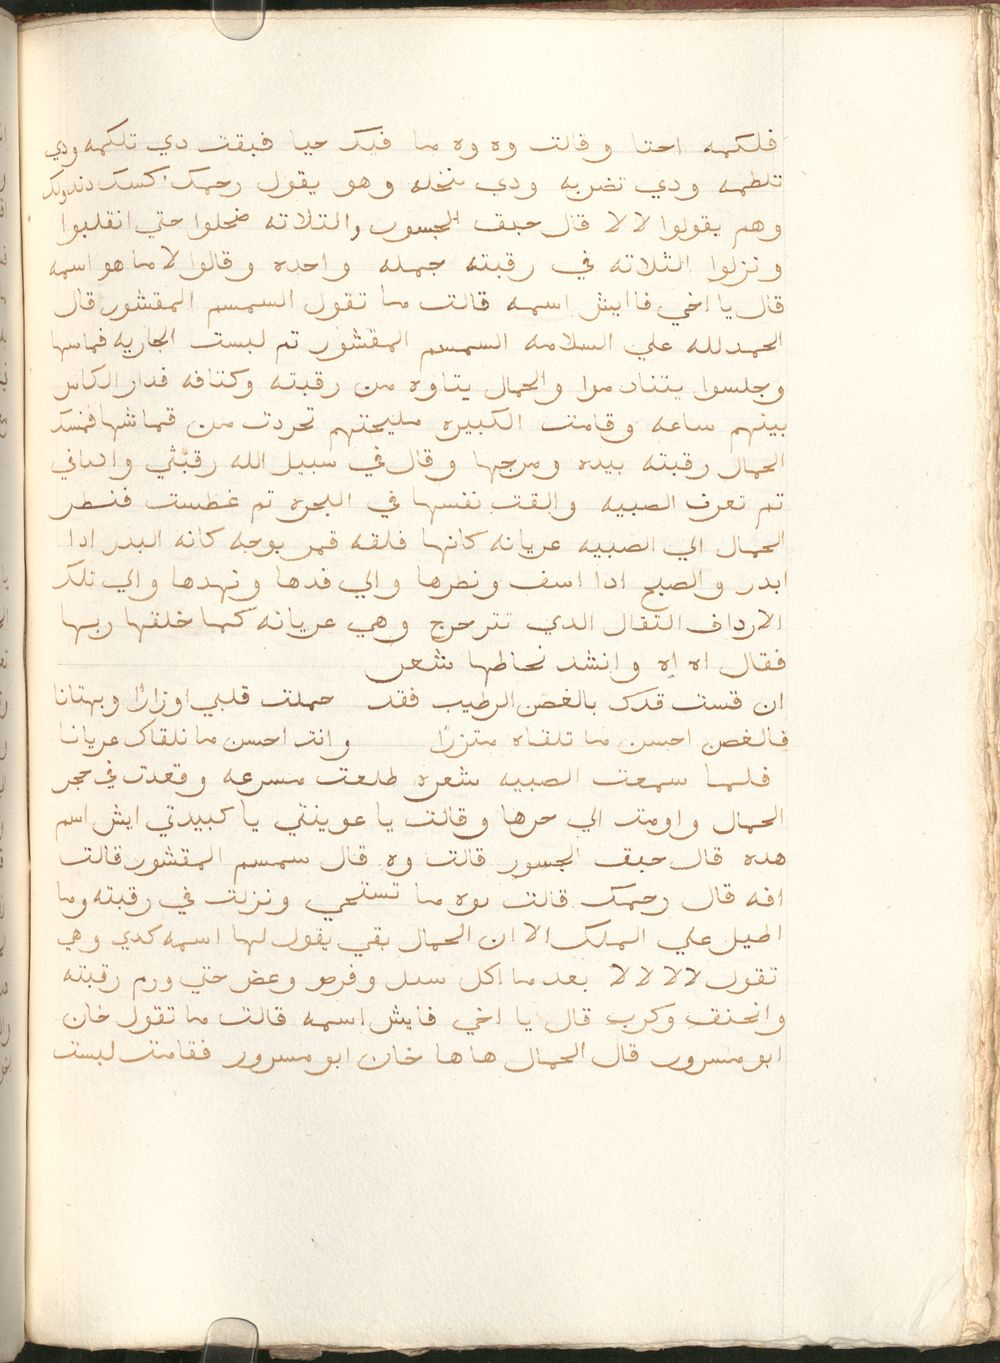 فلكمه احتا وقالت وه وه ما فيك حيا فبقت دي تلكمه ودي
تلطمه ودي تضربه ودي تنخله وهو يقول رحمك كسك دندولك
وهم يقولوا لا لا قال حبق الجسور والتلاته ضحلوا حتي انقلبوا
ونزلوا الثلاثه في رقبته جمله واحده وقالوا لا ما هو اسمه
قال يا اخي فاايش اسمه قالت ما تقول السمسم المقشور قال
الحمد لله علي السلامه السمسم المقشور تم لبست الجاريه قماسها
وجلسوا يتنادموا والحمال يتاوه من رقبته وكتافه فدار الكاس
بينهم ساعه وقامت الكبيره مليحتهم تحردت من قماشها فمسك
الحمال رقبته بيده ومرجها وقال في سبيل الله رقبتي واكتافي
تم تعرت الصبيه والقت نفسها في البحره تم غطست فنطر
الحمال الي الصبيه عريانه كانها فلقه قمر بوجه كانه البدر ادا
ابدر والصبح ادا اسف ونطرها والي قدها ونهدها والي تلك
الارداف التقال الدي تترحرج وهي عريانه كما خلقها ربها
فقال اه اه وانشد نحاطها شعر
ان قست قدك بالغصن الرطيب فقد حملت قلبي اوزارًا وبهتانا
فالغصن احسن ما تلقاه متزرًا وانت احسن ما نلقاك عريانا
فلما سمعت الصبيه شعره طلعت مسرعه وقعدت في حجر
الحمال واومت الي حرها وقالت يا عوينتي يا كبيدتي ايش اسم
هده قال حبق الجسور قالت وه قال سمسم المقشور قالت
افه قال رحمك قالت يوه ما تستحي ونزلت في رقبته وما
اطيل علي الملك الا ان الحمال بقي يقول لها اسمه كدي وهي
تقول لا لا لا لا بعد ما اكل وعض حتي ورم رقبته
وانخنق وكرب قال يا اخي فايش اسمه قالت ما تقول خان
ابو مسرور قال الحمال ها ها خان ابو مسرور فقامت لبست